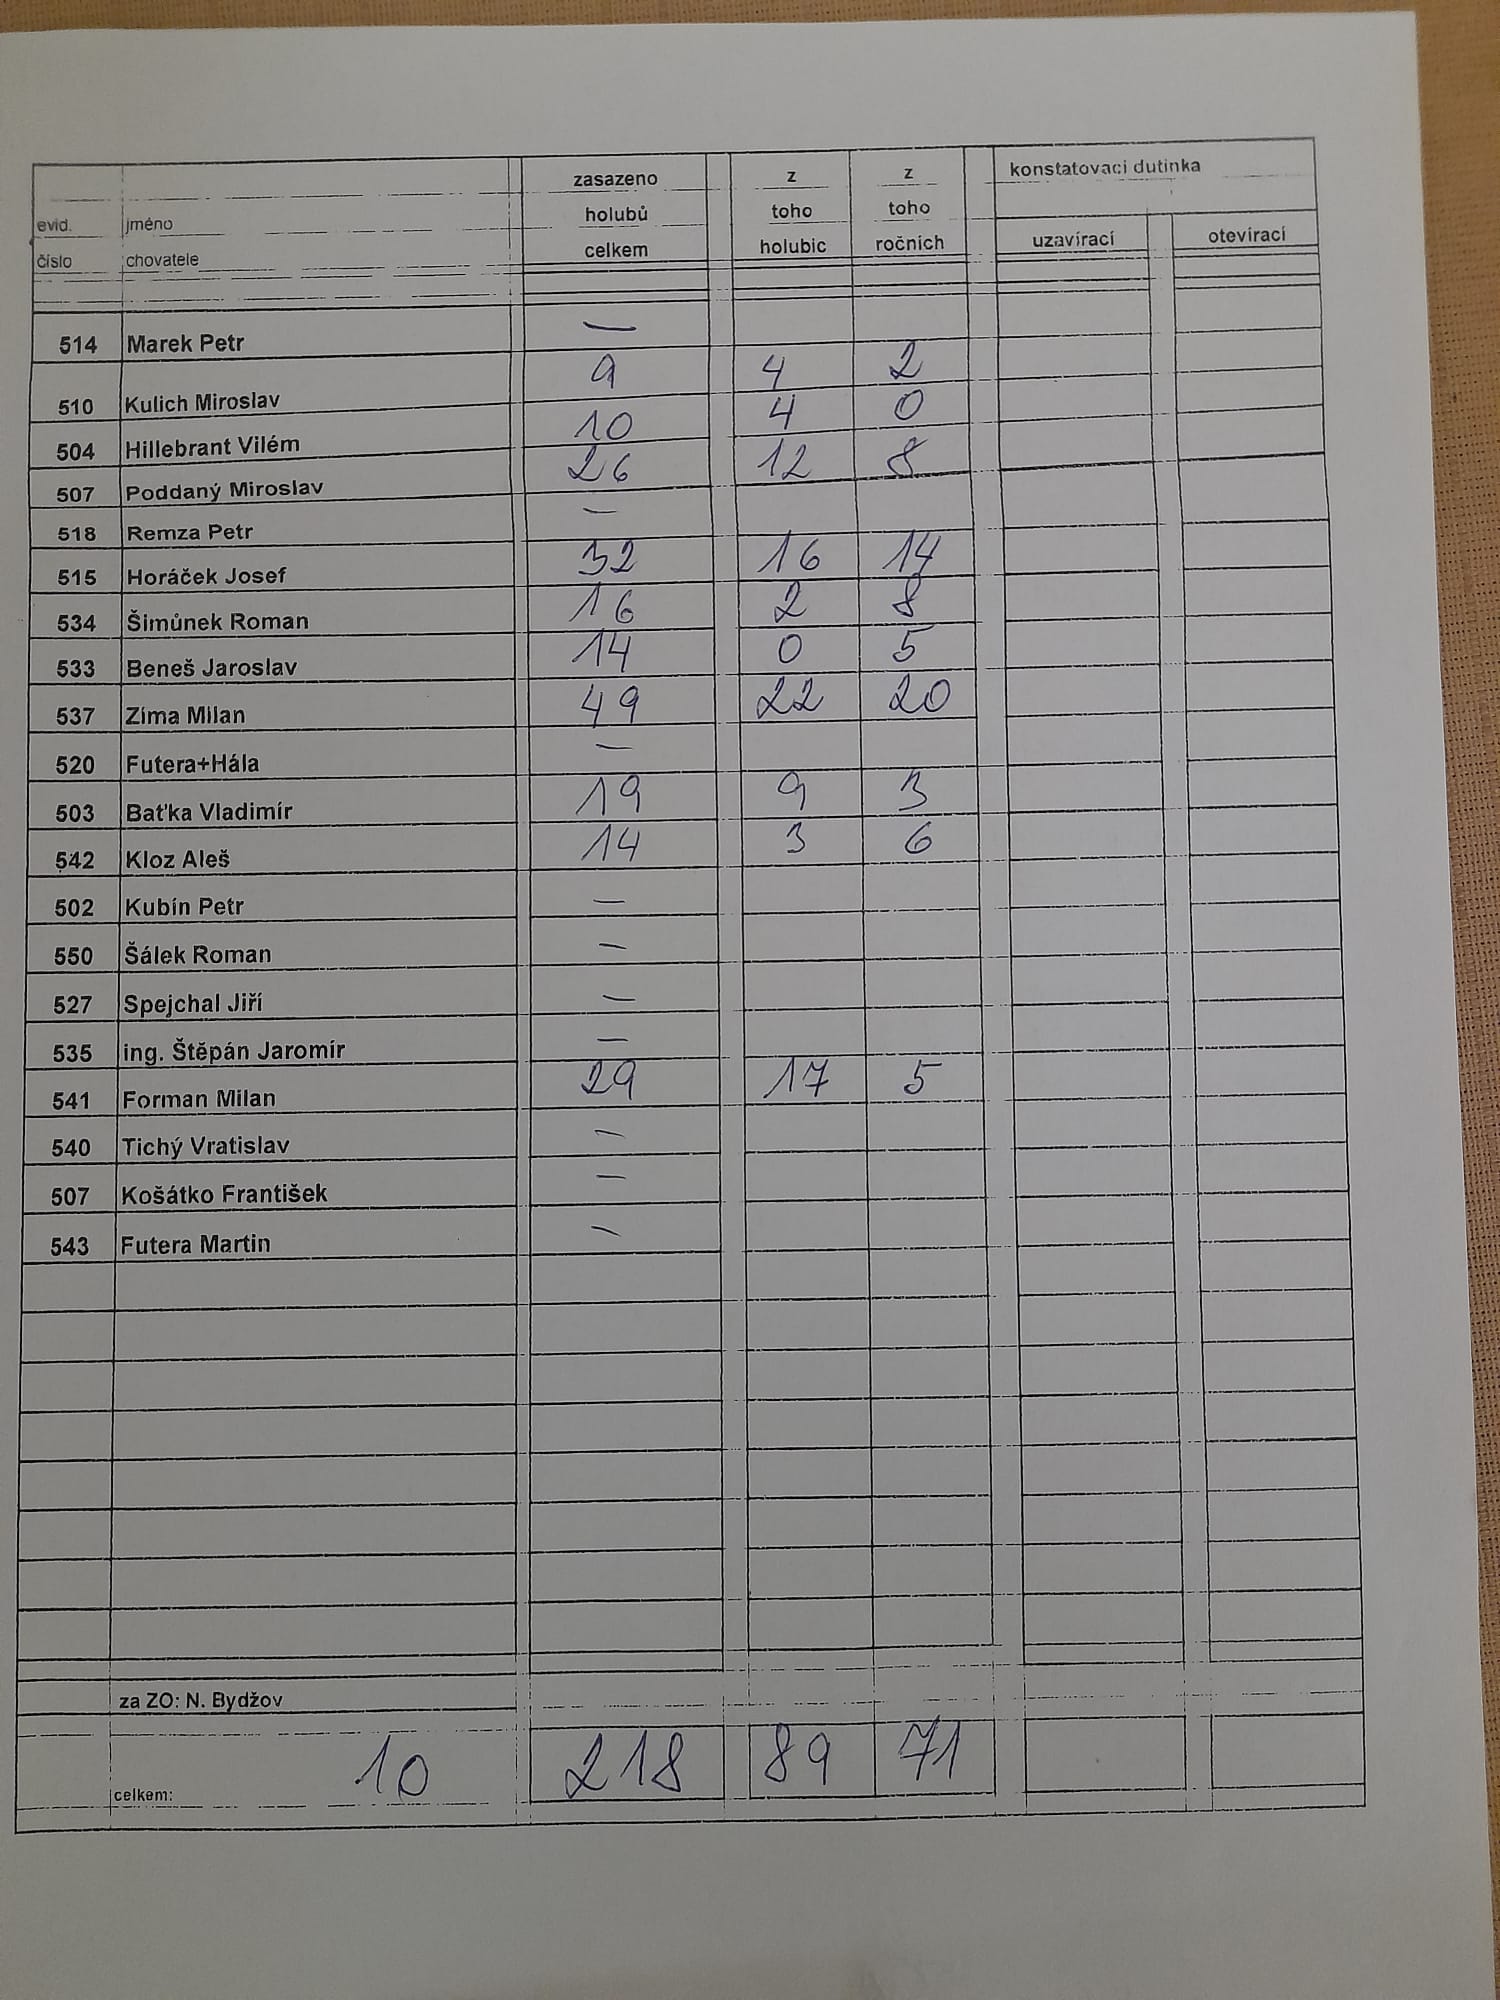 zasazeno z z konstatovaci dutinka
evid. jméno holubů toho toho
číslo chovatele celkem holubic ročních uzavírací otevírací
514 Marek Petr —
510 Kulich Miroslav 9 4 2
504 Hillebrant Vilém 10 4 0
507 Poddaný Miroslav 26 12 8
518 Remza Petr —
515 Horáček Josef 32 16 14
534 Šimůnek Roman 16 2 8
533 Beneš Jaroslav 14 0 5
537 Zima Milan 49 22 20
520 Futera+Hála —
503 Baťka Vladimír 19 9 3
542 Kloz Aleš 14 3 6
502 Kubín Petr —
550 Šálek Roman —
527 Spejchal Jiří —
535 ing. Štěpán Jaromír —
541 Forman Milan 29 17 5
540 Tichý Vratislav —
507 Košátko František —
543 Futera Martin —
za ZO: N. Bydžov
celkem: 10 218 89 71